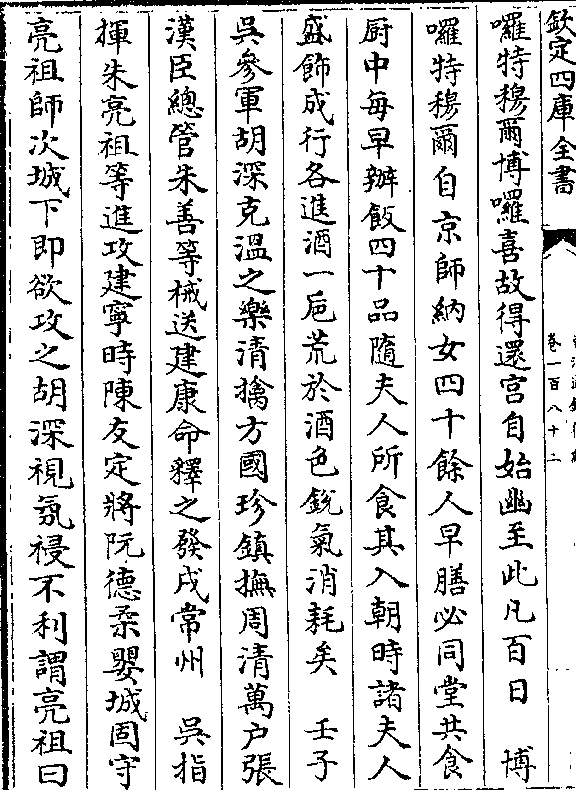 欽定四庫全書
卷一百八十二
囉特穆爾博囉喜故得還宫自始幽至此凡百日　博
囉特穆爾自京師納女四十餘人早膳必同堂共食
厨中每早辦飯四十品隨夫人所食其入朝時諸夫人
盛飾成行各進酒一巵荒於酒色鋭氣消耗矣　壬子
吳參軍胡深克溫之樂清擒方國珍鎮撫周清萬户張
漢臣總管朱善等械送建康命釋之發戍常州　吳指
揮朱亮祖等進攻建寧時陳友定將阮德柔嬰城固守
亮祖師次城下即欲攻之胡深視氛祲不利謂亮祖曰